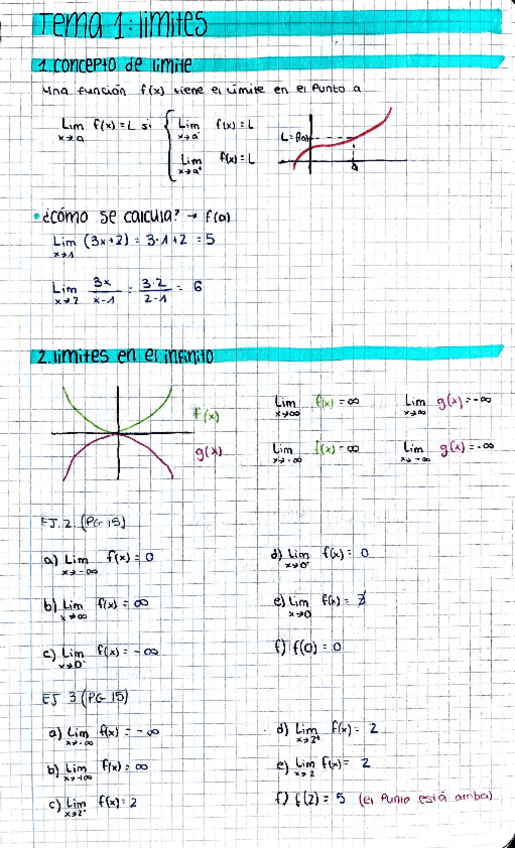 Tema 1: límites
1. concepto de límite
Una función f(x) tiene el límite en el punto a
Lim f(x) = L si { Lim f(x) = L
x→a x→a⁻
Lim f(x) = L
x→a⁺
L = f(a)
a
• ¿cómo se calcula? → f(a)
Lim (3x+2) = 3·1+2 = 5
x→1
Lim 3x/x-1 = 3·2/2-1 = 6
x→2
2. límites en el infinito
f(x)
g(x)
Lim f(x) = ∞ Lim g(x) = -∞
x→∞ x→∞
Lim f(x) = ∞ Lim g(x) = -∞
x→-∞ x→-∞
EJ. 2 (PG 15)
a) Lim f(x) = 0 d) Lim f(x) = 0
x→-∞ x→0⁺
b) Lim f(x) = ∞ e) Lim f(x) = ∄
x→∞ x→0
c) Lim f(x) = -∞ f) f(0) = 0
x→0⁻
EJ 3 (PG 15)
a) Lim f(x) = -∞ d) Lim f(x) = 2
x→-∞ x→2⁺
b) Lim f(x) = ∞ e) Lim f(x) = 2
x→+∞ x→2
c) Lim f(x) = 2 f) f(2) = 5 (el punto está arriba)
x→2⁻